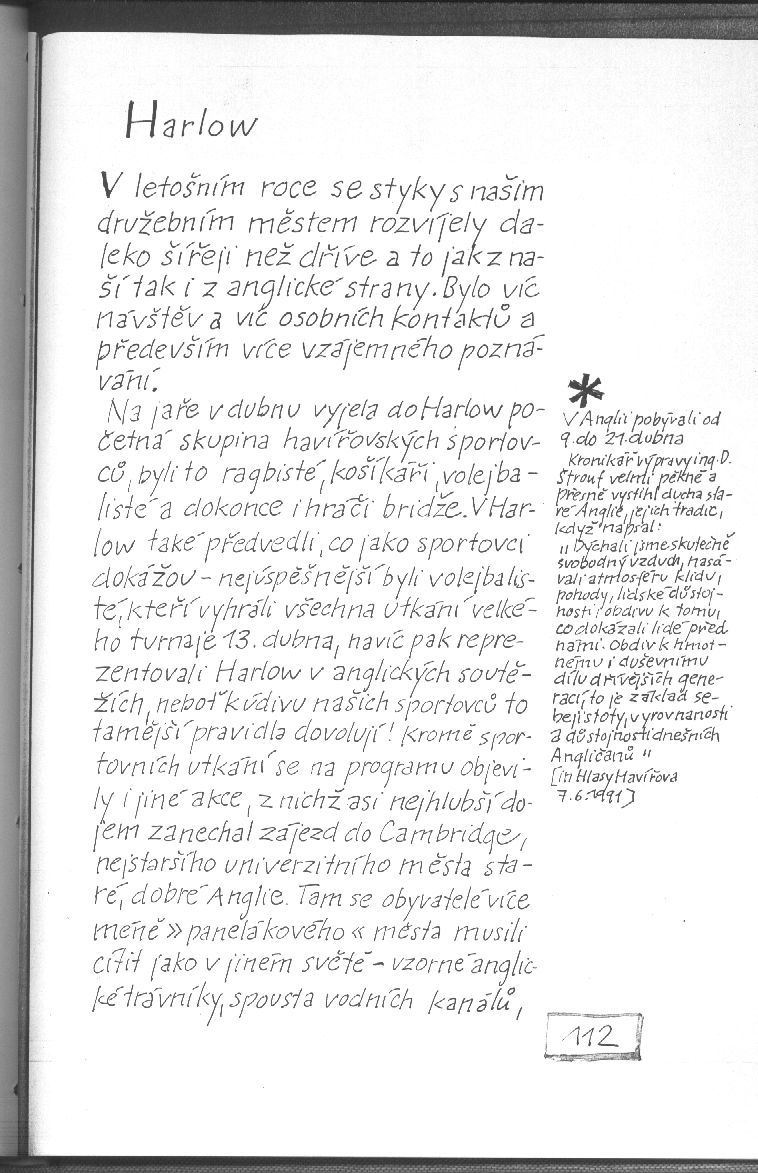 Harlow
V letošním roce se styky s naším
družebním městem rozvíjely da-
leko šířeji než dříve a to jak z na-
ší tak i z anglické strany. Bylo víc
návštěv a víc osobních kontaktů a
především více vzájemného pozná-
vání.
Na jaře v dubnu vyjela do Harlow po-
četná skupina havířovských sportov-
ců, byli to ragbisté, košíkáři, volejba-
listé a dokonce i hráči bridže. V Har-
low také předvedli, co jako sportovci
dokážou - nejúspěšnější byli volejbalis-
té, kteří vyhráli všechna utkání velké-
ho turnaje 13. dubna, navíc pak repre-
zentovali Harlow v anglických soutě-
žích, neboť k údivu našich sportovců to
tamější pravidla dovolují! Kromě spor-
tovních utkání se na programu objevi-
ly i jiné akce, z nichž asi nejhlubší do-
jem zanechal zájezd do Cambridge,
nejstaršího univerzitního města sta-
ré, dobré Anglie. Tam se obyvatelé více
méně » panelákového « města musili
cítit jako v jiném světě - vzorné anglic-
ké trávníky, spousta vodních kanálů,
*
V Anglii pobývali od
9. do 21. dubna
Kronikář výpravy ing. D.
Štrouf velmi pěkně a
přesně vystihl ducha sta-
ré Anglie, jejích tradic,
když napsal:
„Dýchali jsme skutečně
svobodný vzduch, nasá-
vali atmosféru klidu,
pohody, lidské důstoj-
nosti i obdivu k tomu,
co dokázali lidé před
námi. Obdiv k hmot-
nému i duševnímu
dílu dřívějších gene-
rací, to je základ se-
bejistoty, vyrovnanosti
a důstojnosti dnešních
Angličanů "
[in Hlasy Havířova
7.6.1991]
112